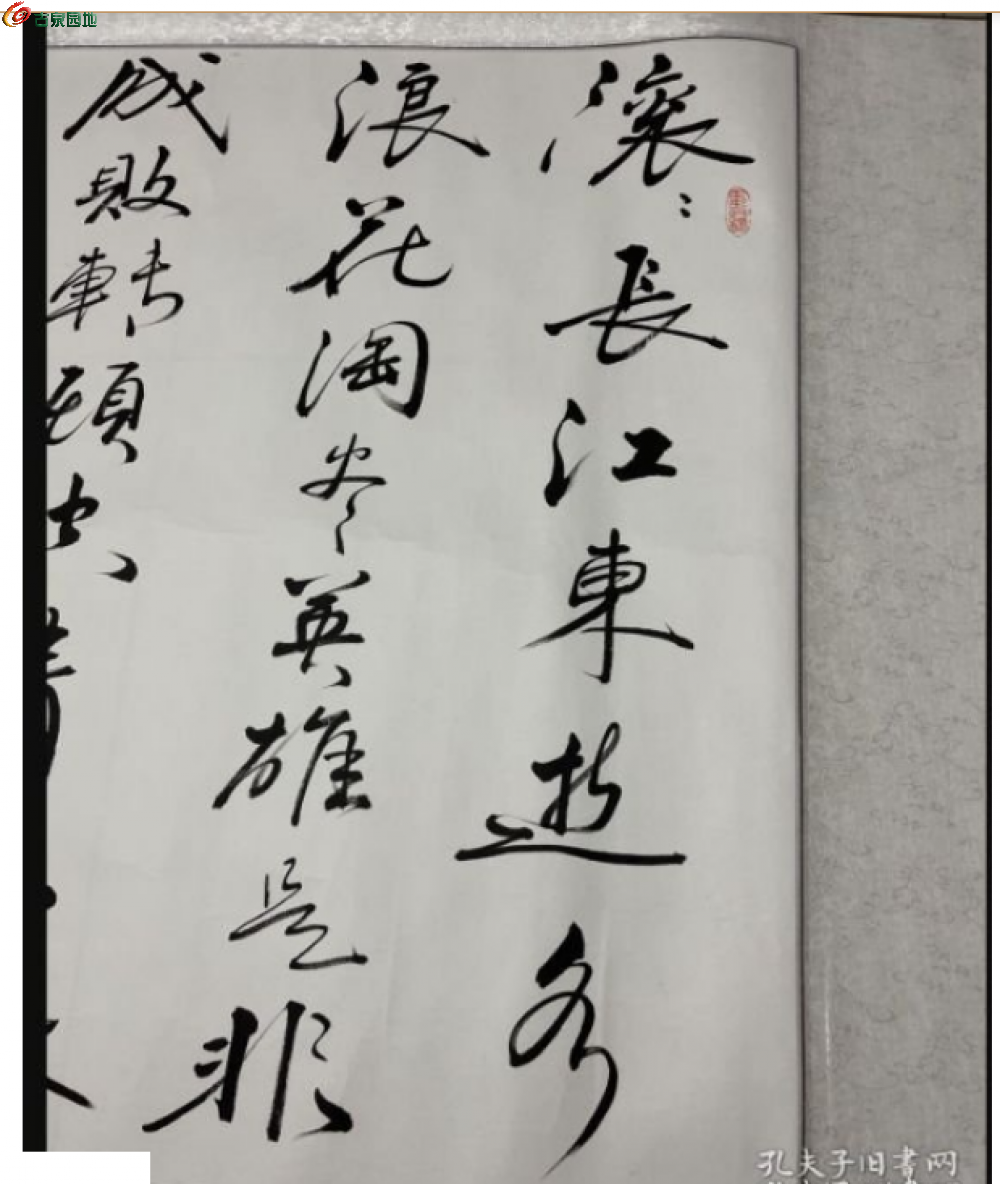 古泉园地
滚〻長江東逝水
浪花淘尽英雄是非
成敗轉頭空
孔夫子旧書网